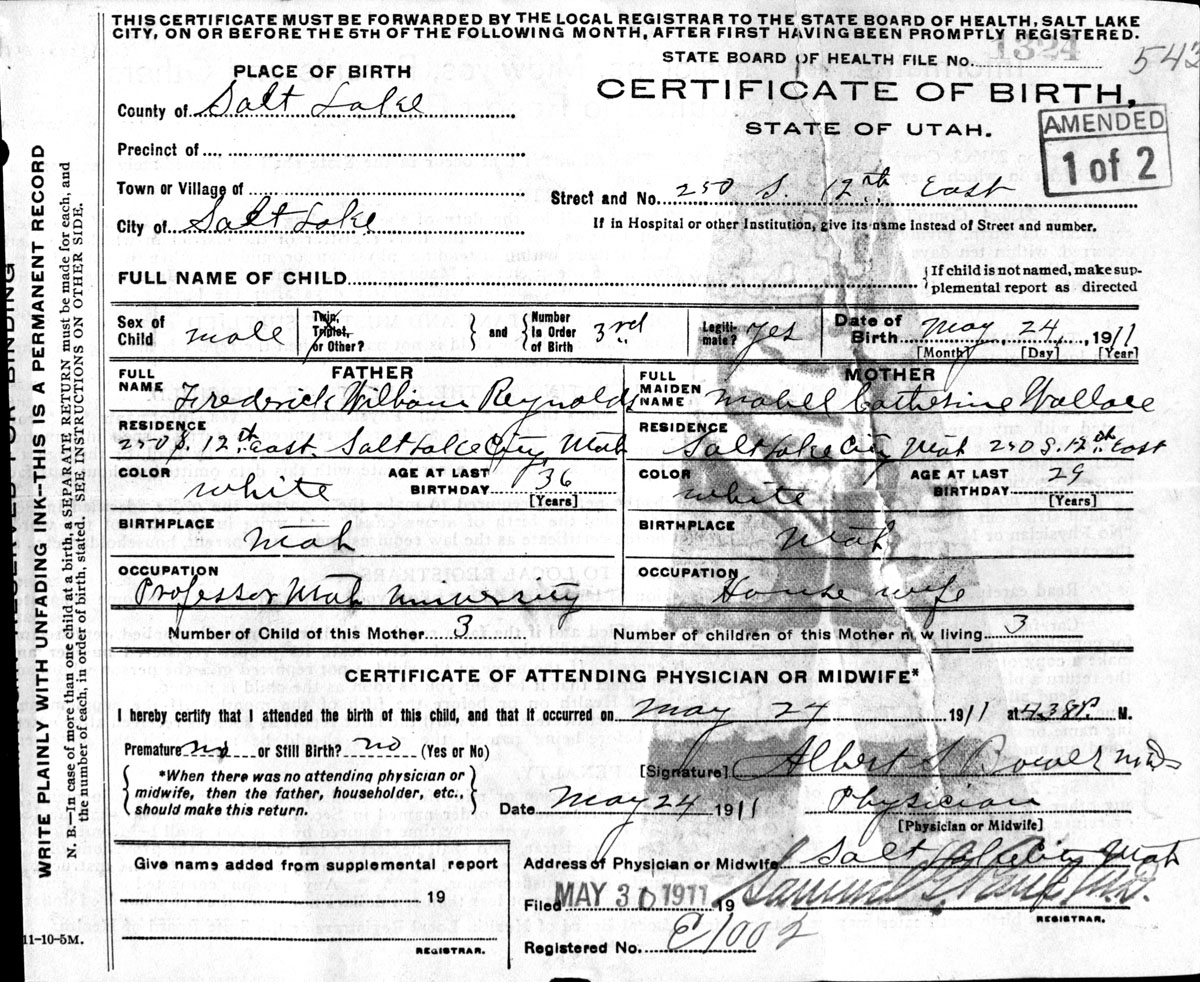 THIS CERTIFICATE MUST BE FORWARDED BY THE LOCAL REGISTRAR TO THE STATE BOARD OF HEALTH, SALT LAKE
CITY, ON OR BEFORE THE 5TH OF THE FOLLOWING MONTH, AFTER FIRST HAVING BEEN PROMPTLY REGISTERED.
1324
STATE BOARD OF HEALTH FILE No. 542
PLACE OF BIRTH
CERTIFICATE OF BIRTH,
County of Salt Lake
STATE OF UTAH.
AMENDED
1 of 2
Precinct of
Town or Village of
Street and No. 250 S. 12th East
City of Salt Lake
If in Hospital or other Institution, give its name instead of Street and number.
FULL NAME OF CHILD
{If child is not named, make sup-
plemental report as directed
Sex of Child male
Twin, Triplet, or Other?
} and { Number in Order of Birth 3rd
Legiti- mate? yes
Date of Birth May 24, 1911
[Month] [Day] [Year]
FATHER
MOTHER
FULL NAME Frederick William Reynolds
FULL MAIDEN NAME Mabel Catherine Wallace
RESIDENCE
250 S. 12th East Salt Lake City, Utah
RESIDENCE
Salt Lake City Utah 250 S. 12th East
COLOR white
AGE AT LAST BIRTHDAY 36 [Years]
COLOR white
AGE AT LAST BIRTHDAY 29 [Years]
BIRTHPLACE Utah
BIRTHPLACE Utah
OCCUPATION
Professor Utah University
OCCUPATION
House wife
Number of Child of this Mother 3
Number of children of this Mother now living 3
CERTIFICATE OF ATTENDING PHYSICIAN OR MIDWIFE*
I hereby certify that I attended the birth of this child, and that it occurred on May 24 1911 at 4.38 P. M.
Premature no or Still Birth? no (Yes or No)
*When there was no attending physician or
midwife, then the father, householder, etc.,
should make this return.
[Signature] Albert S Bower MD
Date May 24 1911 Physician
[Physician or Midwife]
Give name added from supplemental report
19
REGISTRAR.
Address of Physician or Midwife Salt Lake City Utah
Filed MAY 30 1911 19
REGISTRAR.
Registered No. E1002
11-10-5M.
RESERVED FOR BINDING
WRITE PLAINLY WITH UNFADING INK--THIS IS A PERMANENT RECORD
N. B.--In case of more than one child at a birth, a SEPARATE RETURN must be made for each, and
the number of each, in order of birth, stated. SEE INSTRUCTIONS ON OTHER SIDE.